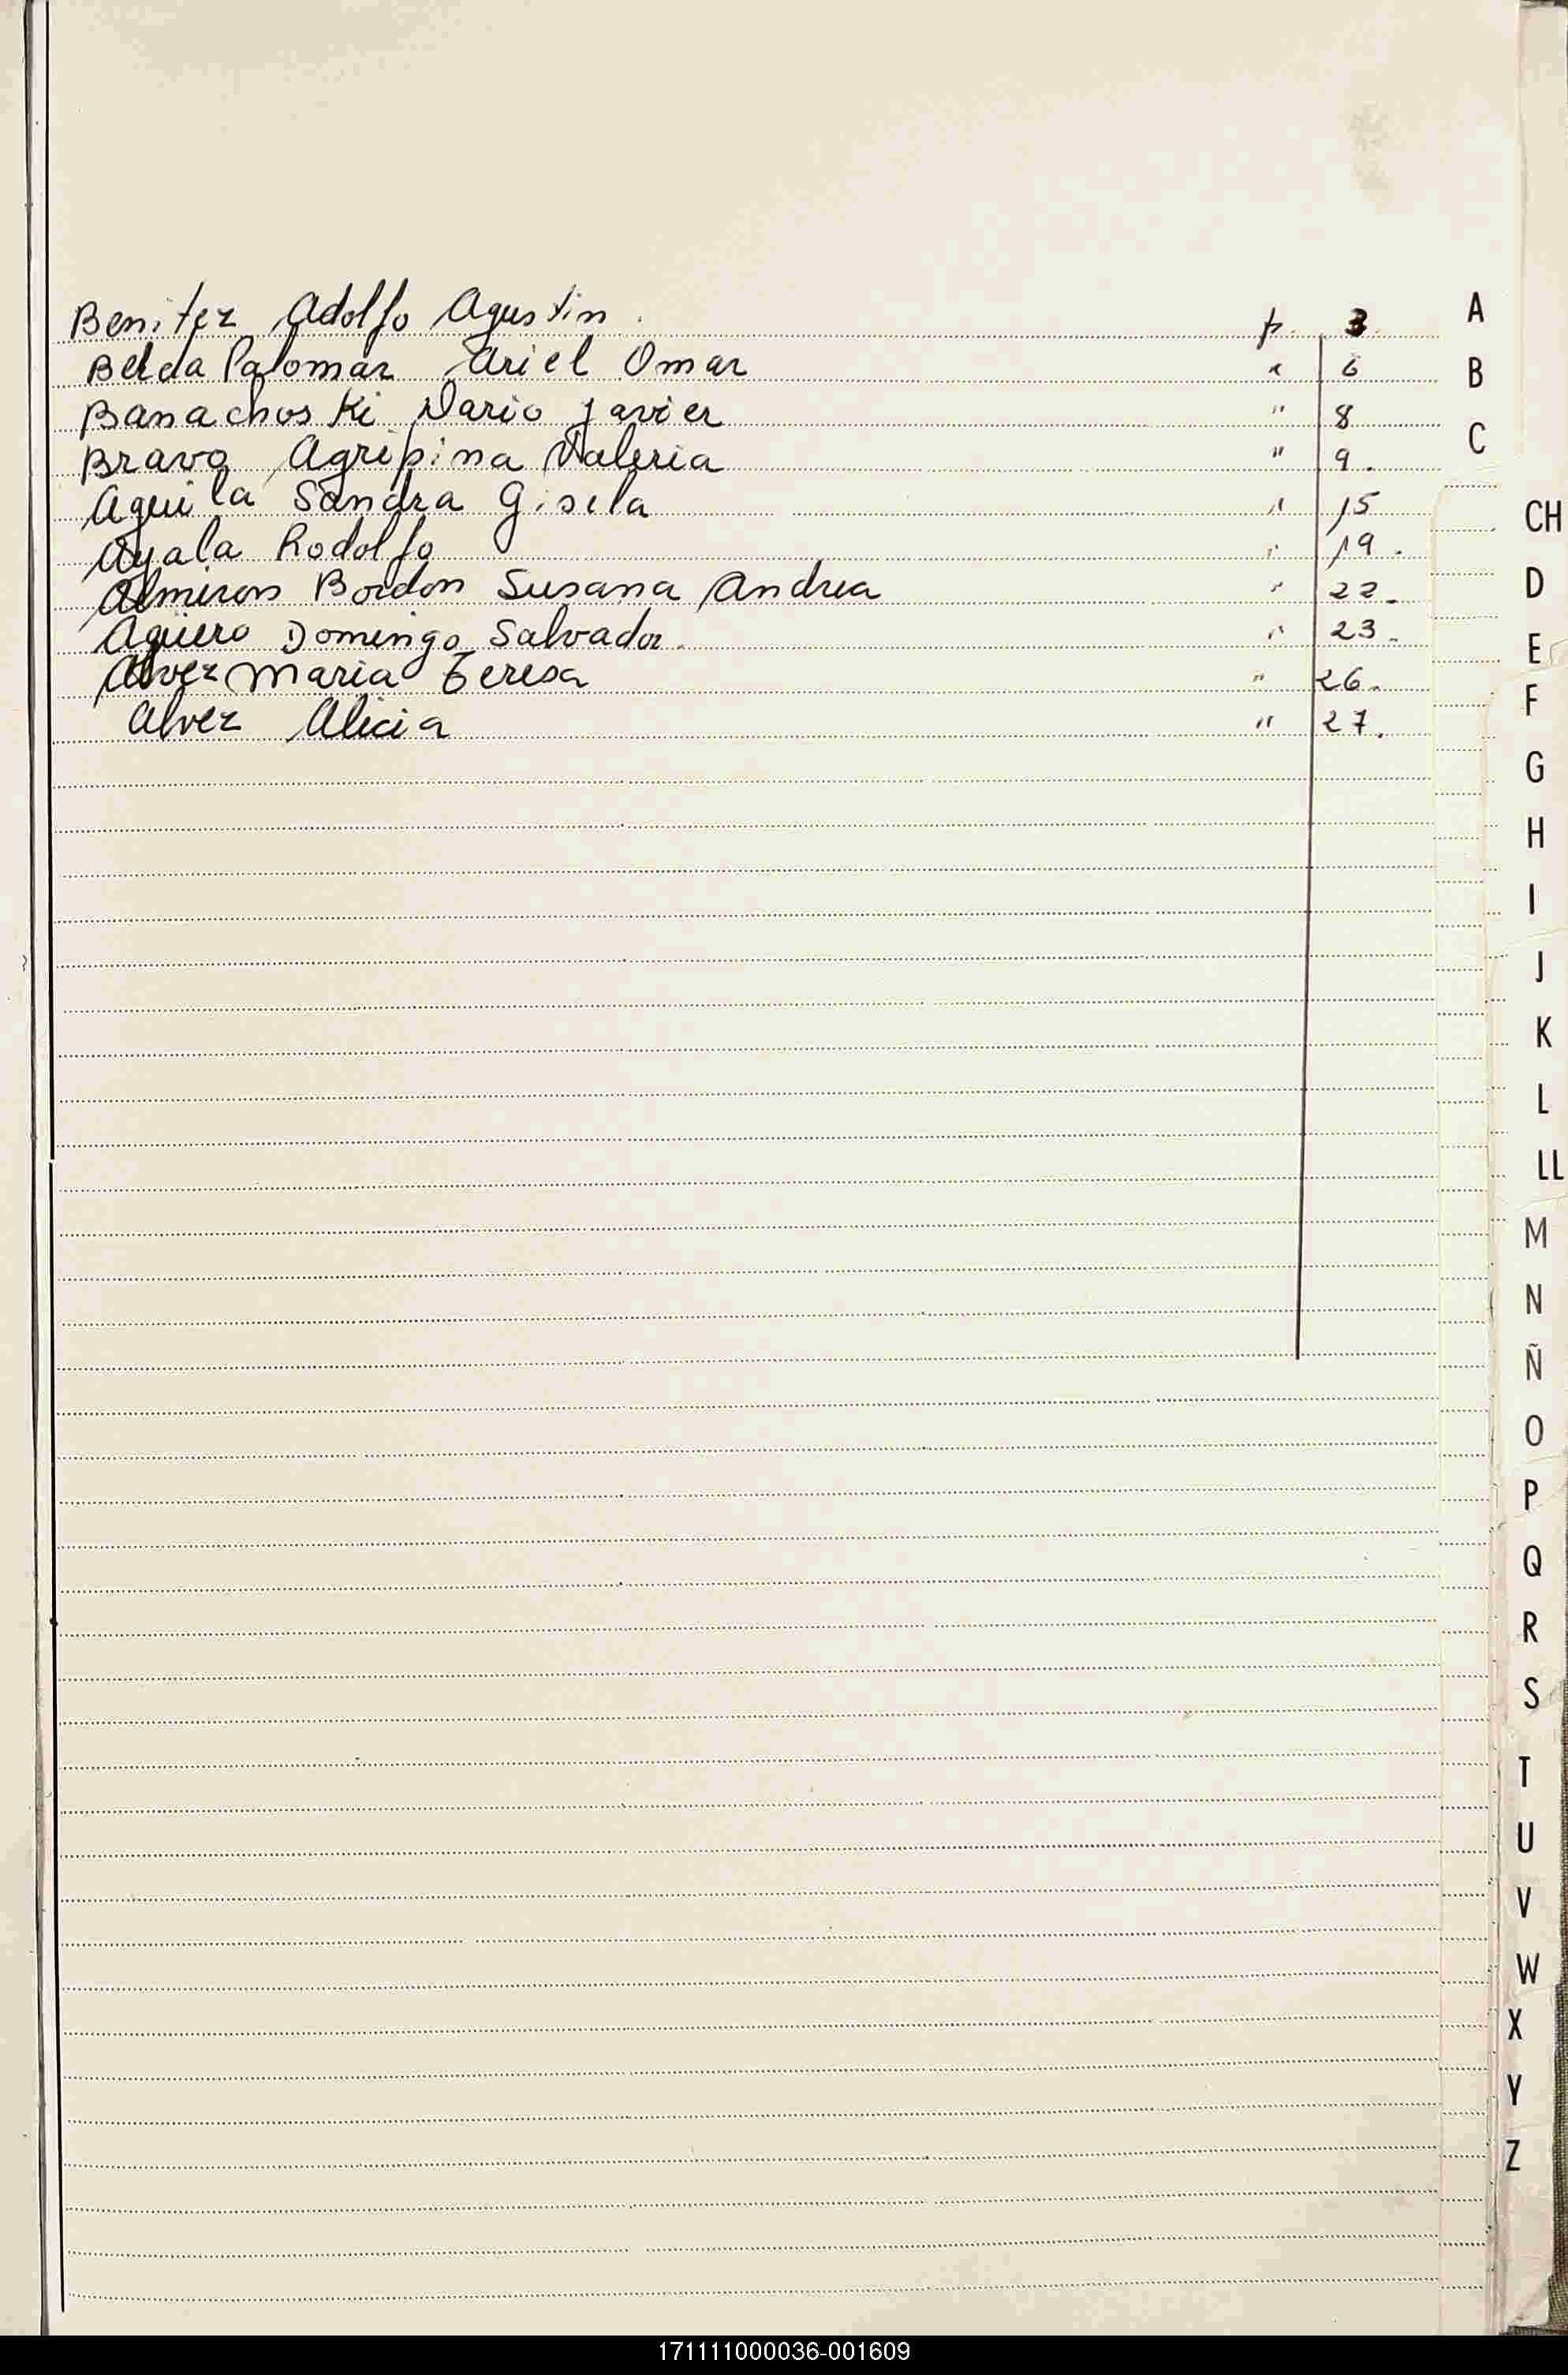 Benitez Adolfo Agustin. p. 3
Belda Palomar Ariel Omar " 6
Banachoski Dario Javier " 8
Bravo Agripina Valeria " 9.
Aguila Sandra Gisela " 15
Ayala Rodolfo " 19.
Almiron Bordon Susana Andrea " 22.
Agüero Domingo Salvador. " 23.
Alvez Maria Teresa " 26.
Alvez Alicia " 27.
A
B
C
CH
D
E
F
G
H
I
J
K
L
LL
M
N
Ñ
O
P
Q
R
S
T
U
V
W
X
Y
Z
171111000036-001609